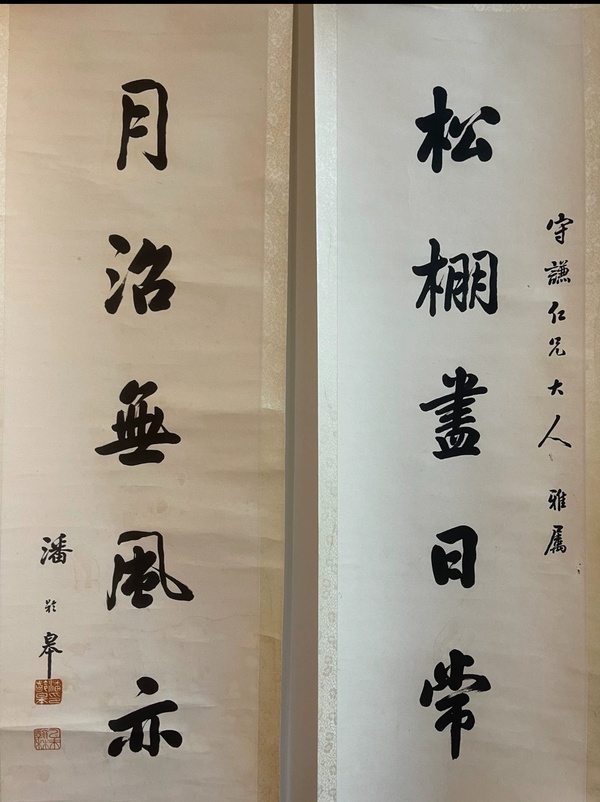 守謙仁兄大人雅屬
松棚盡日常
月沼無風亦
潘齡皋